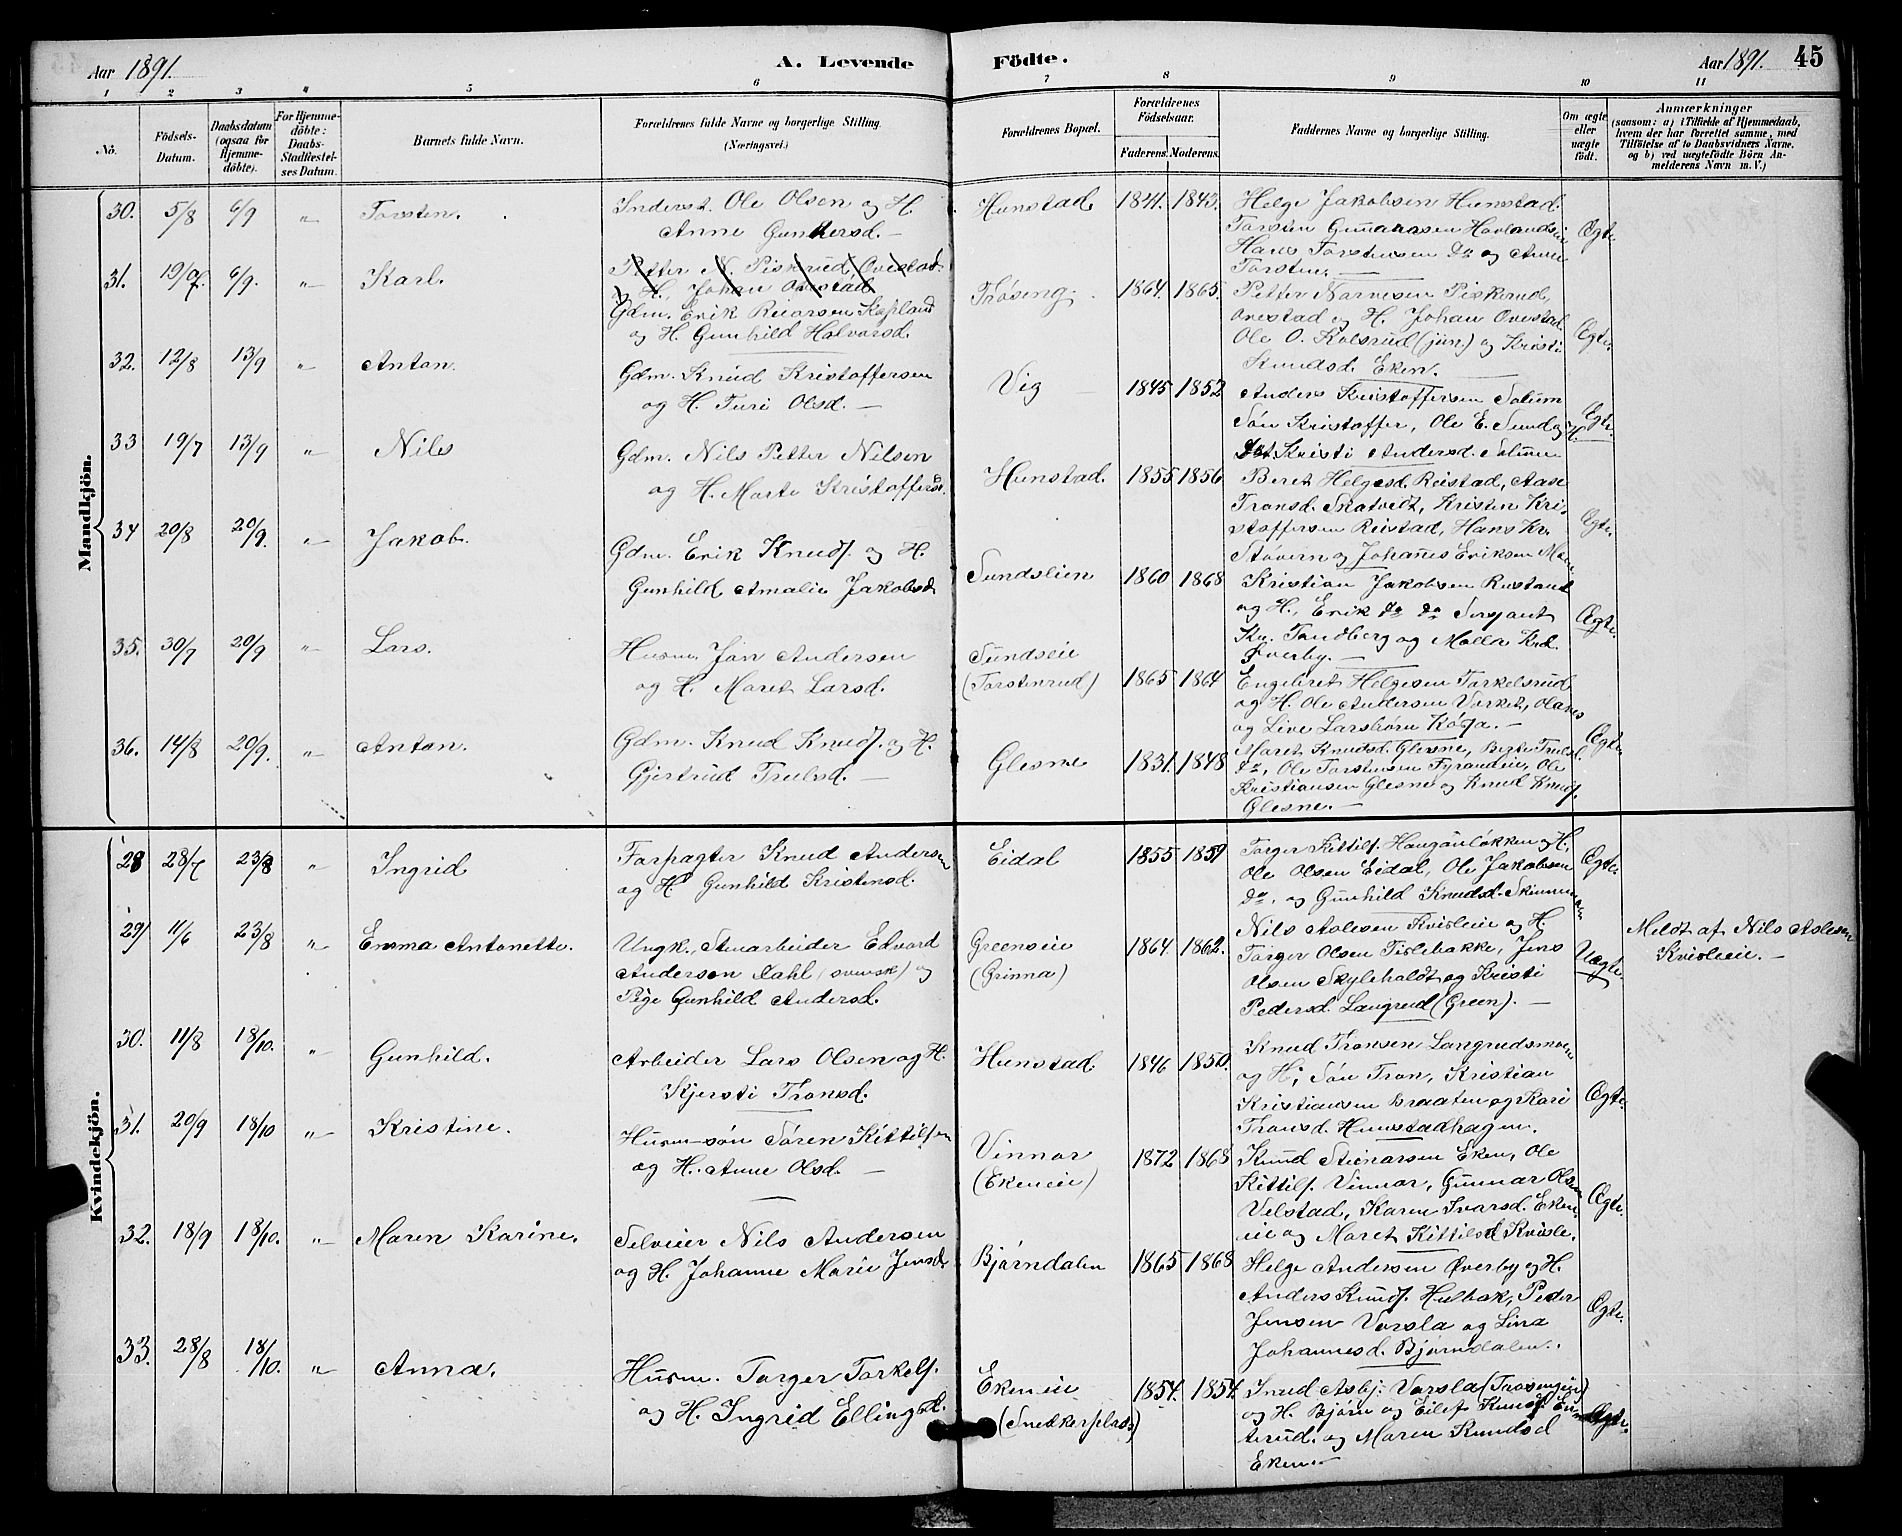 Aar 1891.
A. Levende Födte.
Aar 1891. 45
1 2 3 4 5 6 7 8 9 10 11
No.
Födsels-Datum.
Daabsdatum (ogsaa for Hjemmedöbte).
For Hjemmedöbte: Daabs-Stadfæstelses Datum.
Barnets fulde Navn.
Forældrenes fulde Navne og borgerlige Stilling. (Næringsvei.)
Forældrenes Bopæl.
Forældrenes Födselsaar.
Faderens. Moderens.
Faddernes Navne og borgerlige Stilling.
Om ægte eller uægte födt.
Anmærkninger (saasom: a) i Tilfælde af Hjemmedaab, hvem der har forrettet samme, med Tilföielse af to Daabsvidners Navne, og b) ved uægtefödte Börn Anmelderens Navn m. V.)
Mandkjön.
30. 5/8 6/9 „ Torsten.
Inderst. Ole Olsen og H.
Anne Gunnersd.
Hunstad 1844. 1843.
Helge Jakobsen Hunstad.
Torsten Gunnarsen Havlandseie
Hans Torstensen Do og Anne
Torsten.
Ægte.
31. 6/9. „ Karl.
Petter N. Piskerud, Ovestad
og H. Johan Ovestad
Gdm. Erik Reiarsen
og H. Gunhild Halvorsd.
Trøseng. 1864. 1865.
Petter Narvesen Piskerud,
Ovestad og H. Johan Ovestad
Ole O. Kolsrud (jun.) og Kristi
Knudsd. Eken.
Ægte.
32. 12/8 13/9 „ Anton.
Gdm. Knud Kristoffersen
og H. Turi Olsd.
Vig 1845 1852
Anders Kristoffersen Solum
Søn Kristoffer, Ole E. Sund og
Dat. Kristi Andersd. Solum
Ægte.
33 19/7 13/9 „ Nils
Gdm. Nils Petter Nilsen
og H. Marte Kristoffersd.
Hunstad. 1855 1856
Beret Helgesd. Reistad, Aase
Tronsd. Skotvedt, Kristen Kri-
stoffersen Reistad, Hans Kr.
Støvern og Johannes Eriksen
Ægte.
34 20/8 20/9. „ Jakob.
Gdm. Erik Knuds. og H.
Gunhild Amalie Jakobsd
Sundslien 1860 1868
Kristian Jakobsen Rustand
og H., Erik do do Serjant
Kr. Tandberg og Malla Knd.
Øverby.
Ægte.
35. 30/7 20/9 „ Lars.
Husm. Jan Andersen
og H. Maret Larsd.
Sundseie
(Torstenrud) 1865 1864
Engebret Helgesen Torkelsrud
og H. Ole Andersen
og Live Larsbørn
Ægte
36. 14/8 20/9. „ Anton.
Gdm. Knud Knuds. og H.
Gjertrud Trulsd.
Glesne 1831. 1848
Maret Knudsd. Glesne, Berte Trulsd.
do, Ole Torstensen Fyrandeie, Ole
Kristiansen Glesne og Knud Knuds.
Glesne.
Kvindekjön.
28 28/7 23/8 „ Ingrid
Forpagter Knud Andersen
og H Gunhild Kristensd.
Eidal 1855 1859
Torger Kittils. Haugenløkken og H.
Ole Olsen Eidal, Ole Jakobsen
do. og Gunhild Knudsd.
Ægte.
29 11/6 23/8 „ Emma Antonette.
Ungk. Stenarbeider Edvard
Anderson Dahl (svensk) og
Pige Gunhild Andersd.
Greenseie
(Grinna) 1864 1862.
Nils Aslesen Kvisleie og H.
Torger Olsen Tislebakke, Jens
Olsen og Kristi
Pedersd. Langrud (Green).
Uægte.
Meldt af Nils Aslesen
Kvisleie.
30. 11/8 18/10. „ Gunhild.
Arbeider Lars Olsen og H.
Kjersti Tronsd.
Hunstad 1846 1850.
Knud Tronsen Langrudsmoen
og H; Søn Tron, Kristian
Kristiansen Braaten og Kari
Tronsd. Hunstadhagen.
Ægte.
31. 20/9 18/10 „ Kristine.
Husm søn Søren Kittilsen
og H. Anne Olsd.
Vinnar
(Ekeneie) 1872 1868
Knud Steinarsen Eken, Ole
Kittils. Vinnar, Gunnar Olsen
Velstad, Karen Ivarsd. Eken-
eie og Maret Kittilsd Kvisle.
Ægte.
32. 18/9 18/10. „ Maren Karine.
Selveier Nils Andersen
og H. Johanne Marie Jensd.
Bjørndalen 1865 1868
Helge Andersen Øverby og H.
Anders Knuds. Hulbak, Peder
Jensen Vorsla og Lina
Johannesd. Bjørndalen.
Ægte.
33. 28/8 18/10. „ Anna.
Husm. Torger Torkels.
og H. Ingrid Ellingsd.
Ekeneie
(Snekkerplads) 1854. 1854.
Knud Asbj. Vorsla (Trosengeie)
og H. Bjørn og Eilef Knuds.
og Maren Knudsd
Eken.
Ægte.